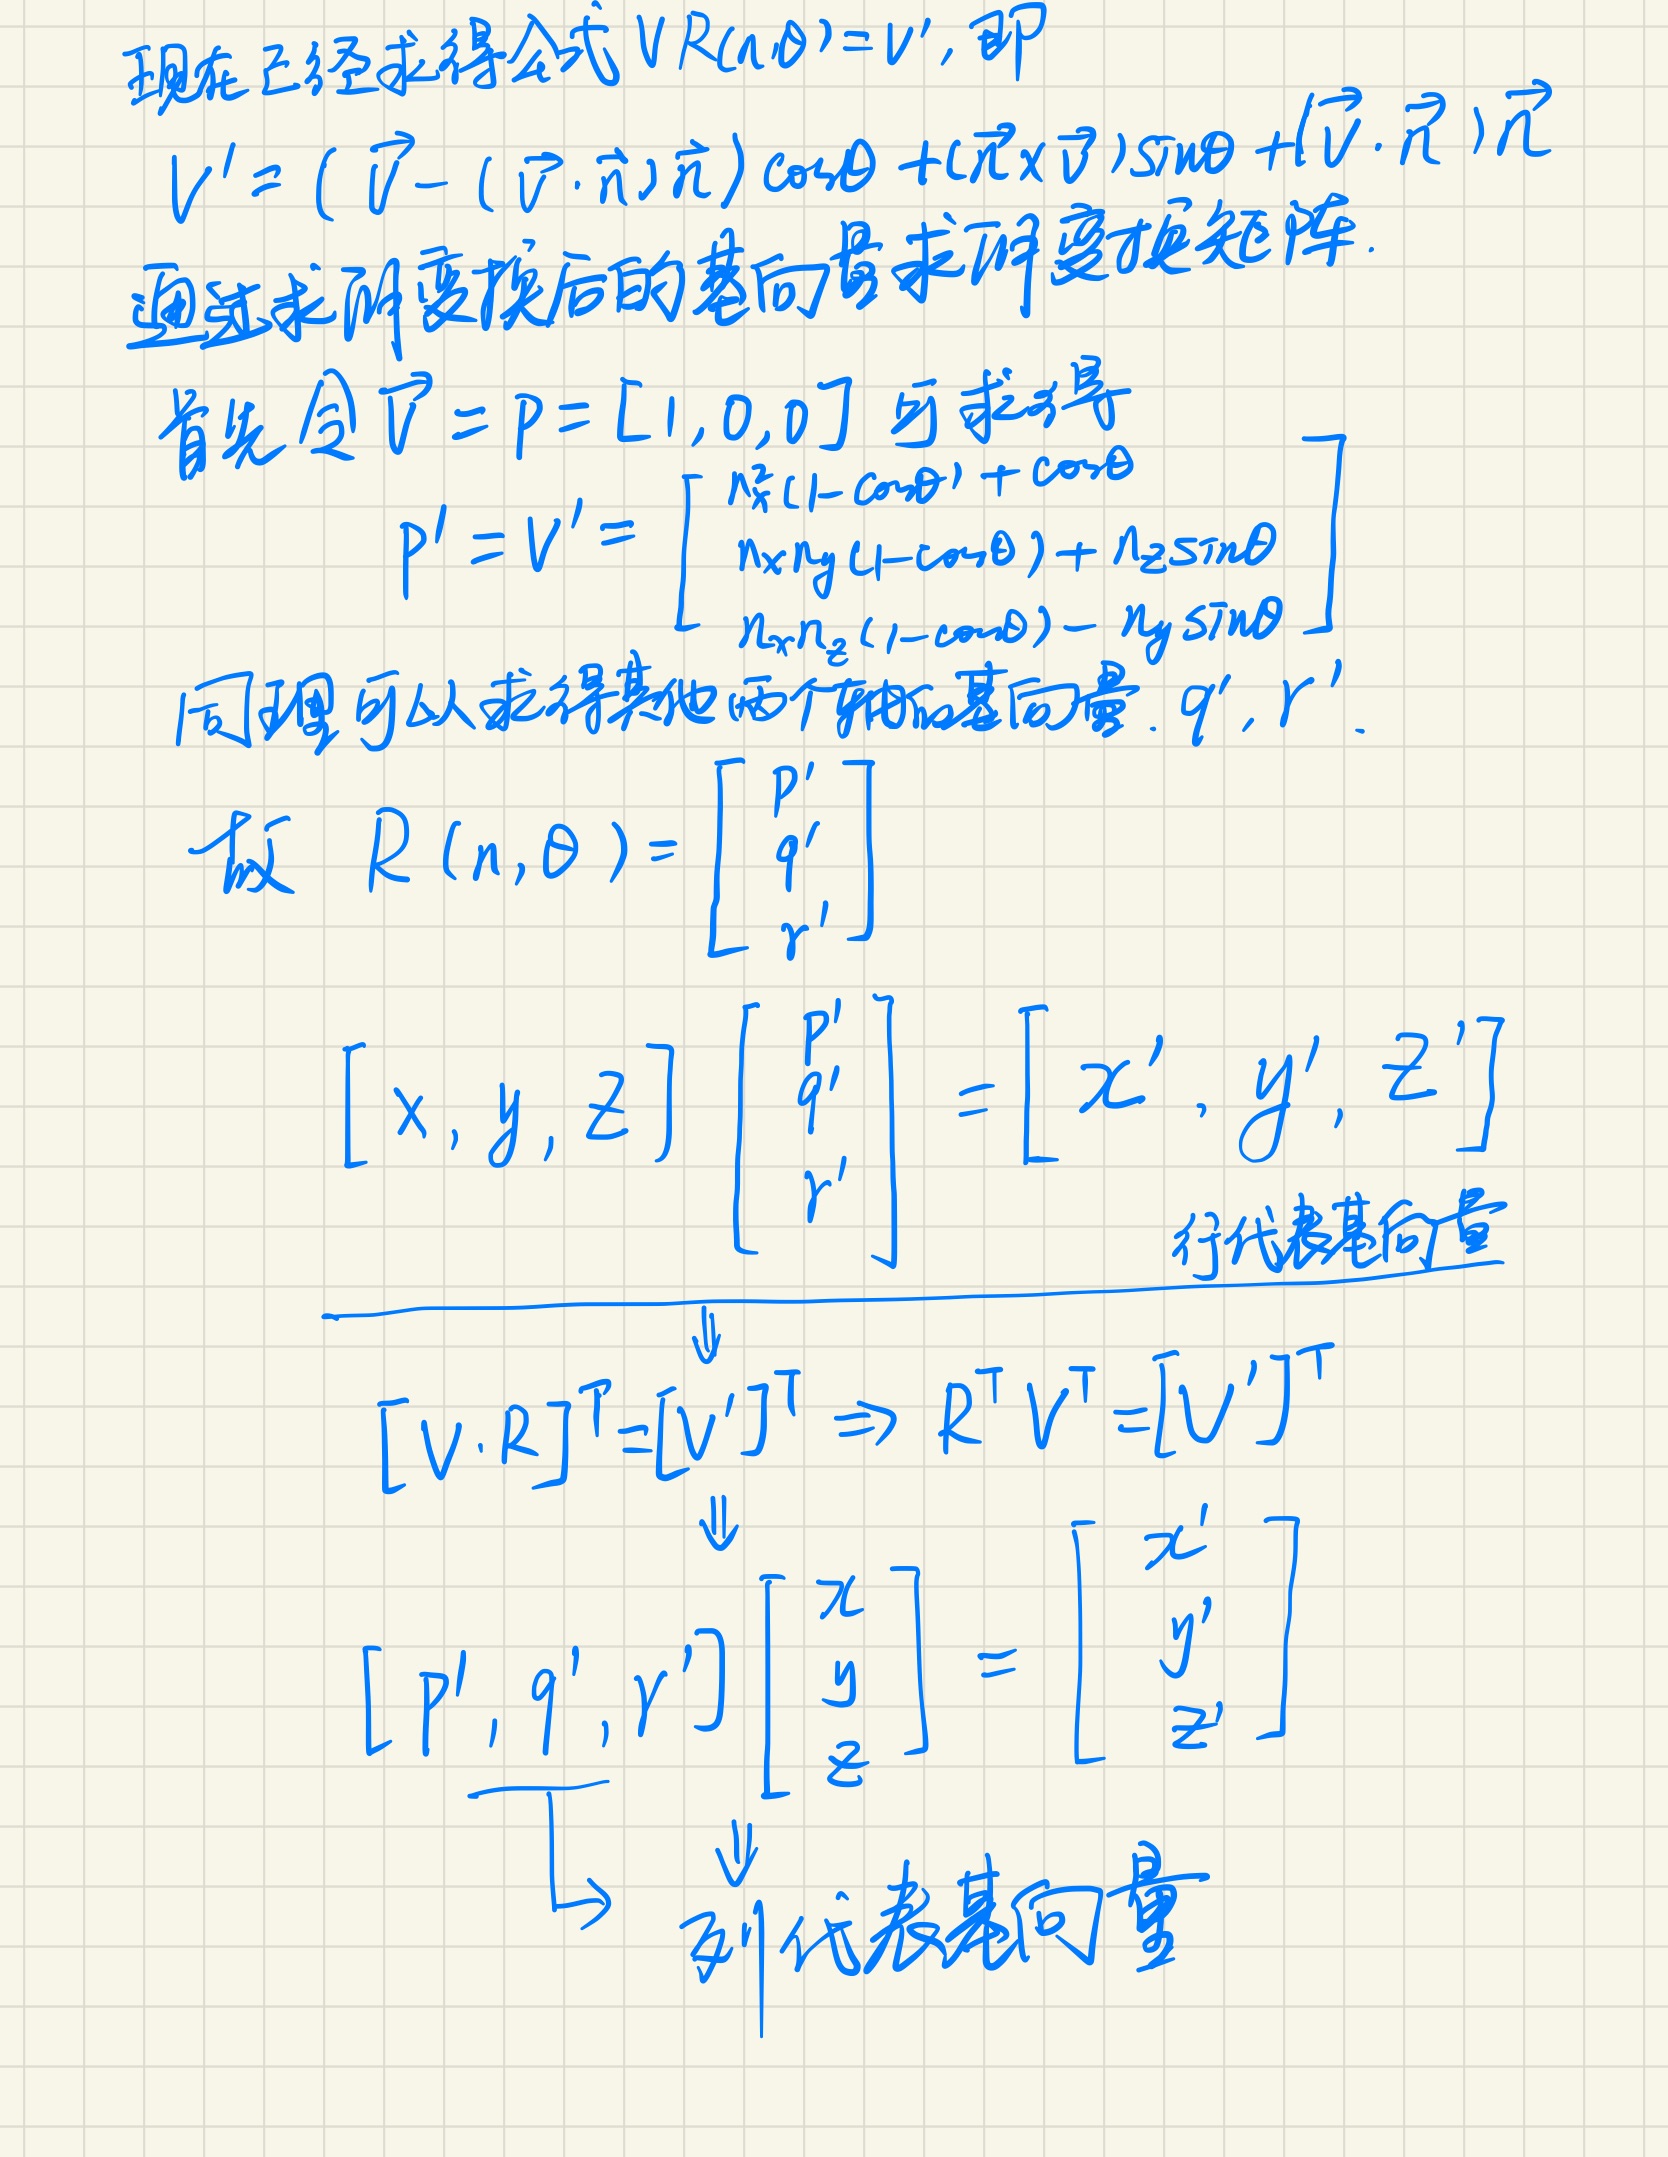 现在已经求得公式VR(n,θ)=V',即
V'=(V⃗-(V⃗·n⃗)n⃗)cosθ+(n⃗×V⃗)sinθ+(V⃗·n⃗)n⃗
通过求解变换后的基向量求解变换矩阵.
首先令V⃗=P=[1,0,0]可求得
n²ₓ(1-cosθ)+cosθ
P'=V'= nₓn_y(1-cosθ)+n_z sinθ
nₓn_z(1-cosθ)-n_y sinθ
同理可以求得其他两个轴的基向量.q',r'.
故 R(n,θ)=[p'
q'
r']
[x,y,z][p' q' r']=[x',y',z']
行代表基向量
⇓
[V·R]ᵀ=[V']ᵀ⇒RᵀVᵀ=[V']ᵀ
⇓
[p',q',r'][x y z]=[x' y' z']
⇓
列代表基向量